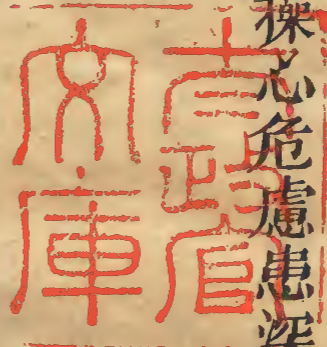 操心危慮患深
大政官
文庫